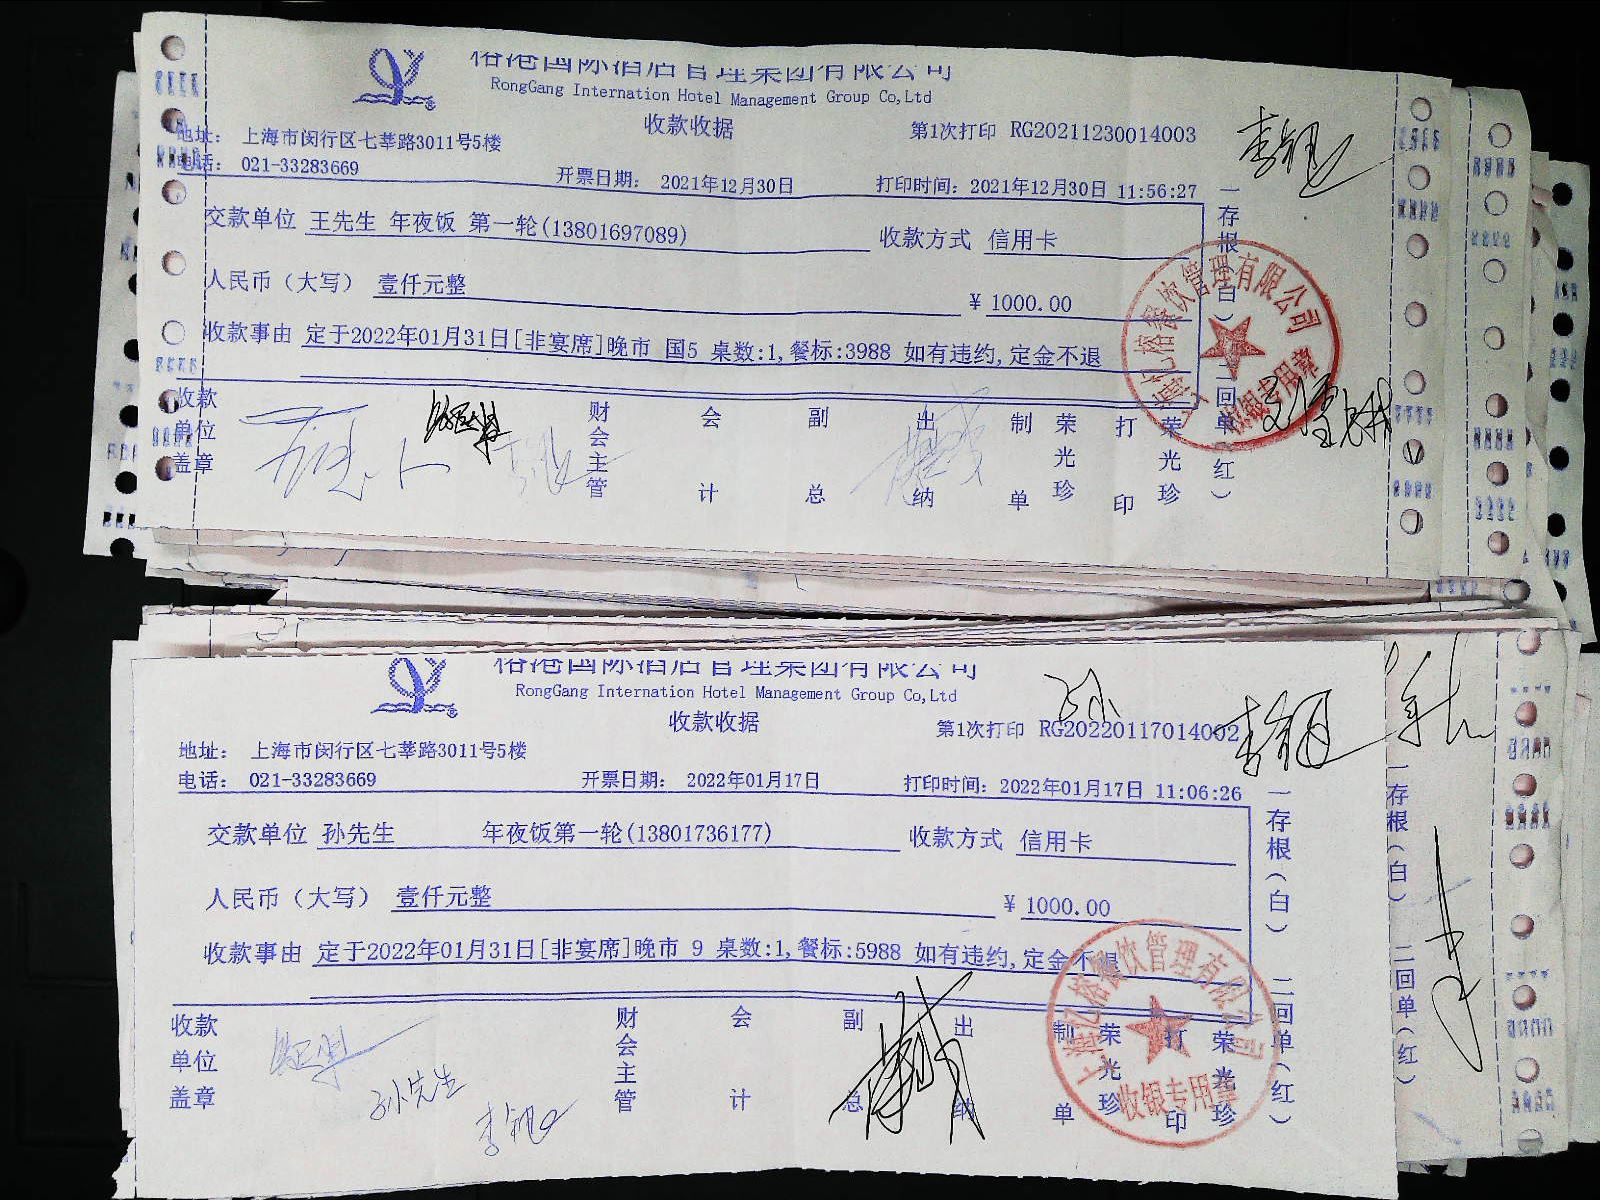 榕港国际酒店管理集团有限公司
RongGang Internation Hotel Management Group Co,Ltd
收款收据
第1次打印 RG20211230014003
地址: 上海市闵行区七莘路3011号5楼
电话: 021-33283669
开票日期: 2021年12月30日
打印时间: 2021年12月30日 11:56:27
交款单位 王先生 年夜饭 第一轮(13801697089)
收款方式 信用卡
人民币（大写） 壹仟元整
¥ 1000.00
收款事由 定于2022年01月31日[非宴席]晚市 国5 桌数:1,餐标:3988 如有违约,定金不退
收款单位盖章
财会主管
会计
副总
出纳
制单
荣光珍
打印
荣光珍
一存根(白) 二回单(红)
收银专用章
榕港国际酒店管理集团有限公司
RongGang Internation Hotel Management Group Co,Ltd
收款收据
第1次打印 RG20220117014002
地址: 上海市闵行区七莘路3011号5楼
电话: 021-33283669
开票日期: 2022年01月17日
打印时间: 2022年01月17日 11:06:26
交款单位 孙先生 年夜饭第一轮(13801736177)
收款方式 信用卡
人民币（大写） 壹仟元整
¥ 1000.00
收款事由 定于2022年01月31日[非宴席]晚市 9 桌数:1,餐标:5988 如有违约,定金不退
收款单位盖章
孙先生
财会主管
会计
副总
出纳
制单
荣光珍
打印
荣光珍
一存根(白) 二回单(红)
上海亿榕餐饮管理有限公司
收银专用章
一存根(白) 二回单(红)